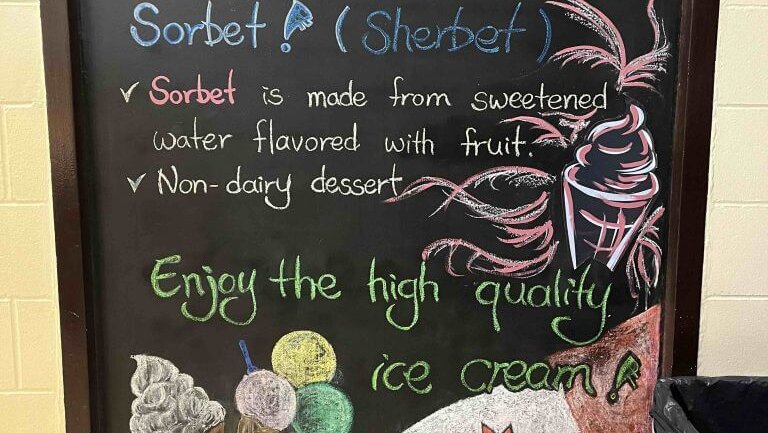 Sorbet ! (Sherbet)
✓ Sorbet is made from sweetened
water flavored with fruit.
✓ Non-dairy dessert.
Enjoy the high quality
ice cream!